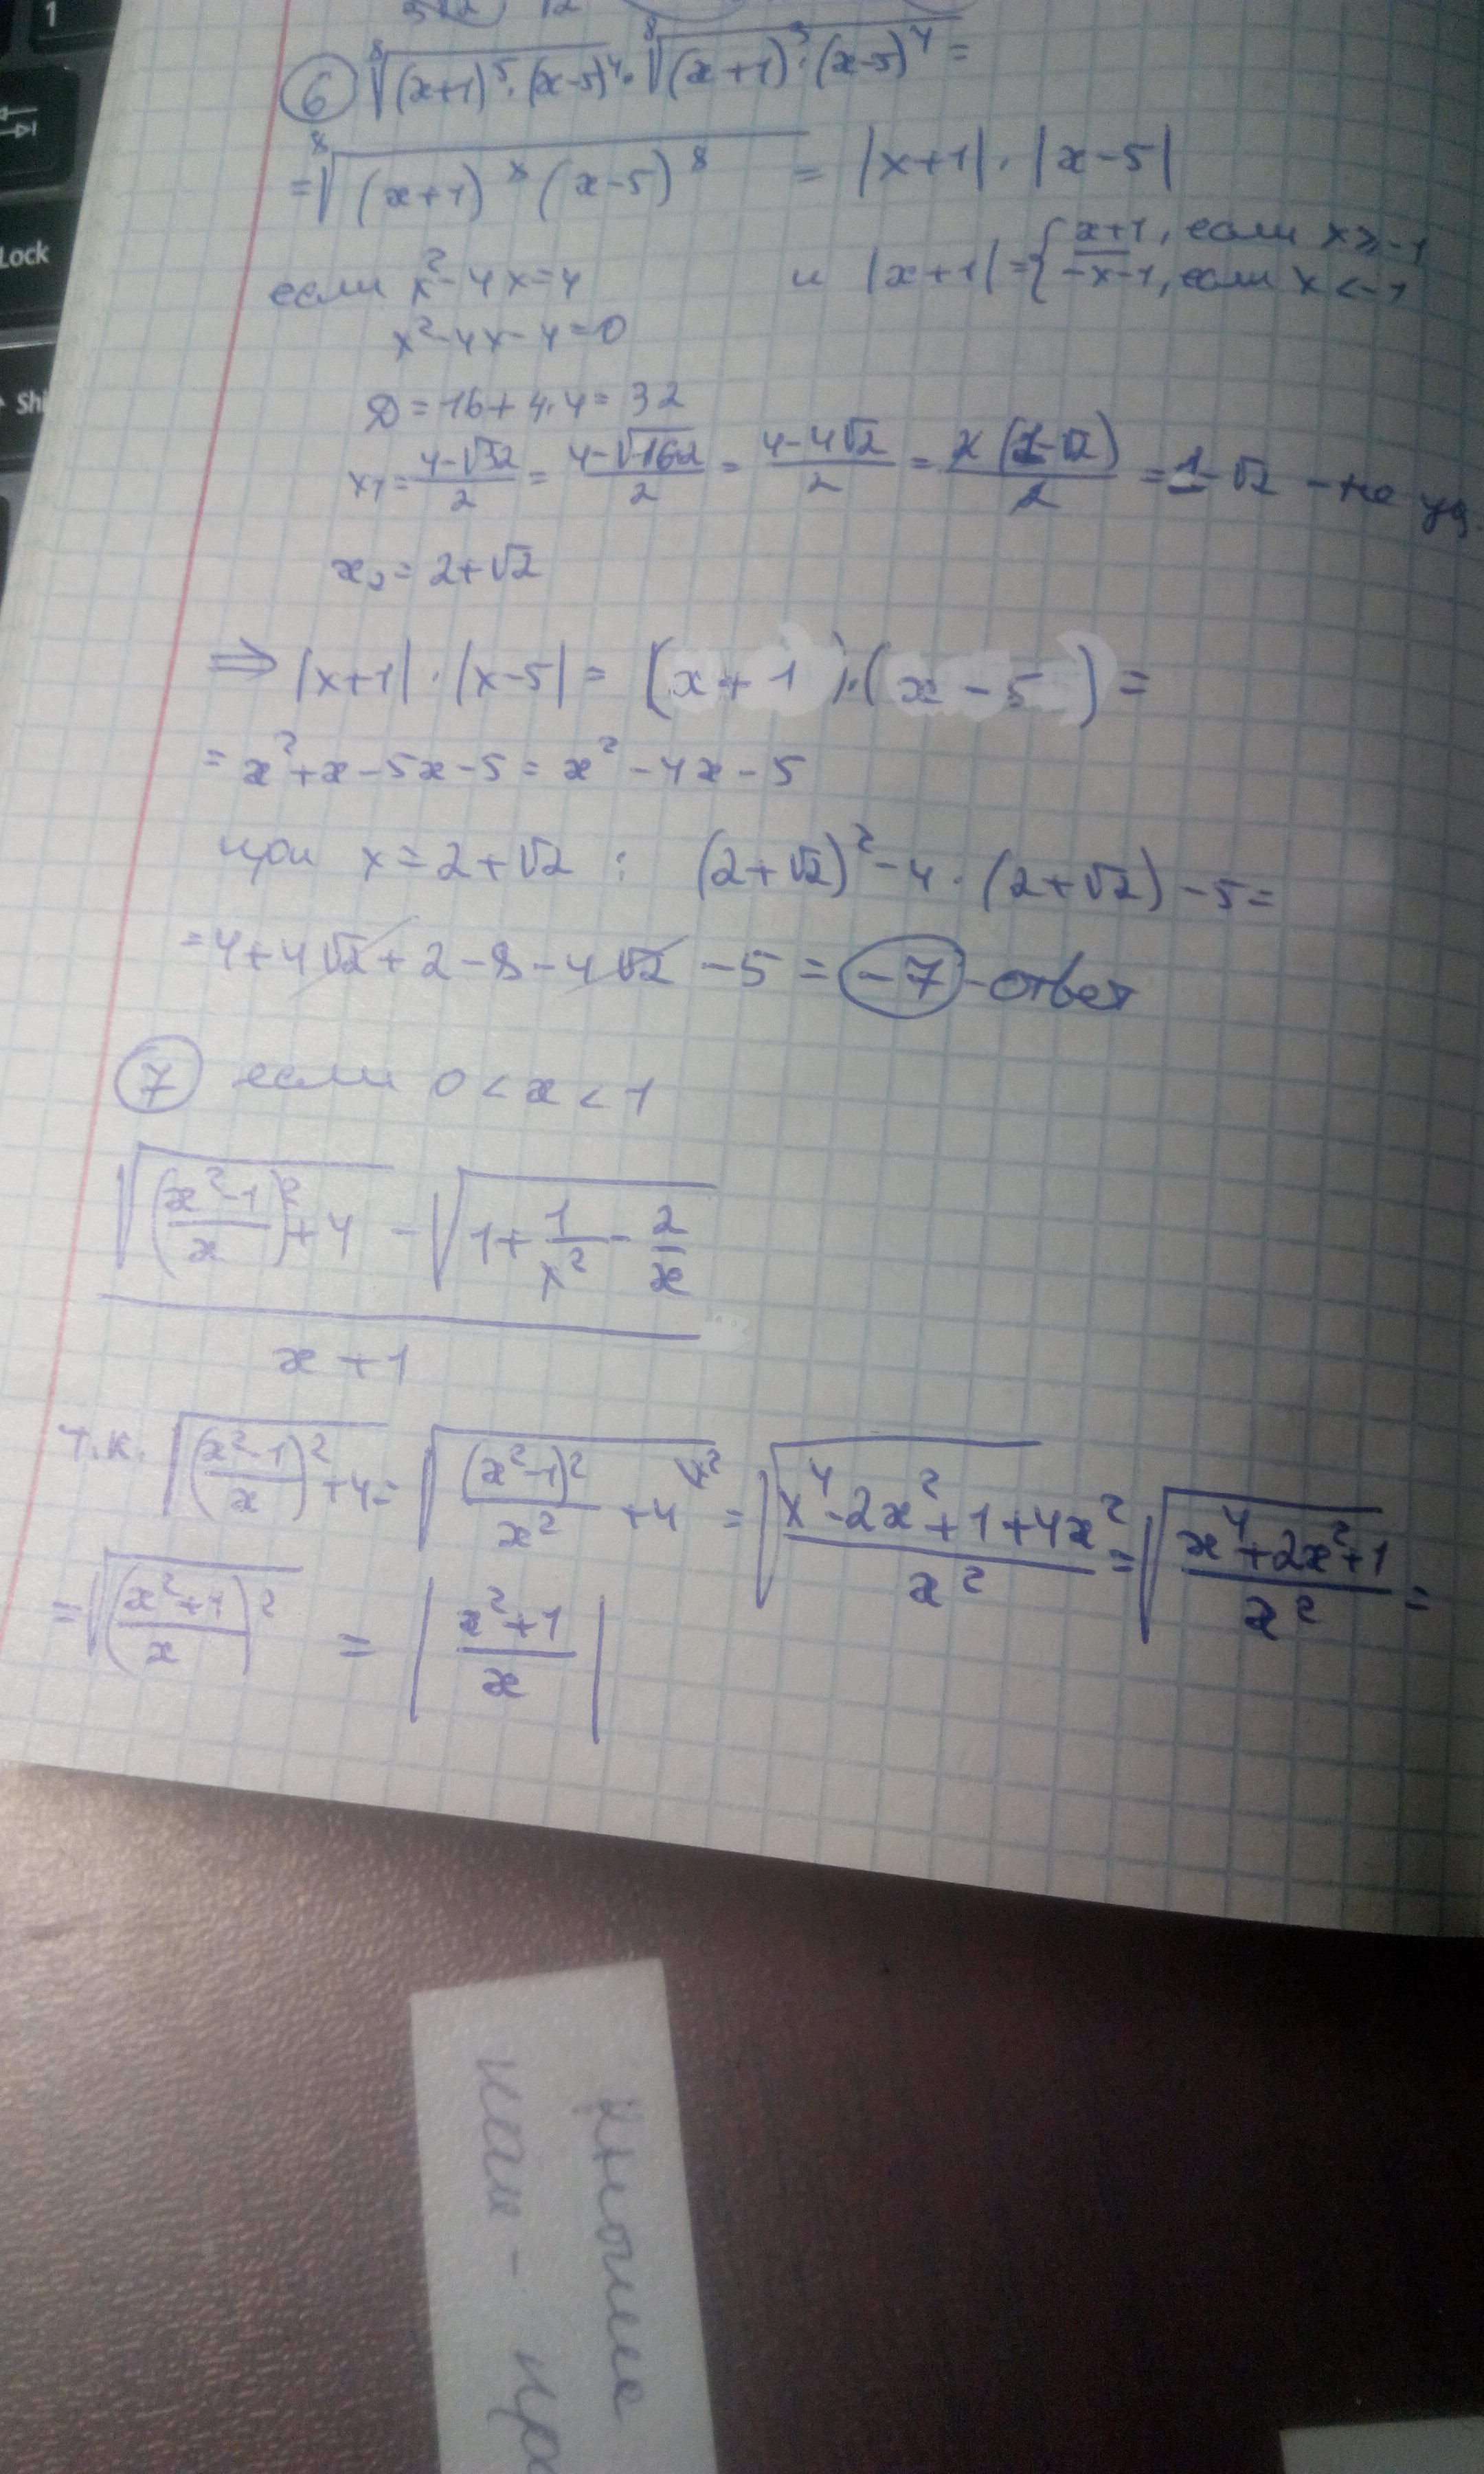 1
Lock
Shi
⑥ ⁸√((x+1)⁵·(x-5)⁴) · ⁸√((x+1)³·(x-5)⁴) =
= ⁸√((x+1)⁸(x-5)⁸) = |x+1|·|x-5|
если x²-4x=4 и |x+1| = { x+1, если x≥-1
-x-1, если x<-1
x²-4x-4=0
D=16+4·4=32
x₁ = (4-√32)/2 = (4-√(16·2))/2 = (4-4√2)/2 = 2(1-√2)/2 = 1-√2 - не уд
x₂ = 2+√2
⇒ |x+1|·|x-5| = (x+1)·(x-5) =
= x²+x-5x-5 = x²-4x-5
при x=2+√2 : (2+√2)²-4·(2+√2)-5=
=4+4√2+2-8-4√2-5 = -7 - ответ
⑦ если 0<x<1
(√(((x²-1)/x)²+4) - √(1+1/x²-2/x))/(x+1)
т.к. √(((x²-1)/x)²+4) = √((x²-1)²/x²+4\x²) = √((x⁴-2x²+1+4x²)/x²) = √((x⁴+2x²+1)/x²) =
= √(((x²+1)/x)²) = |(x²+1)/x|